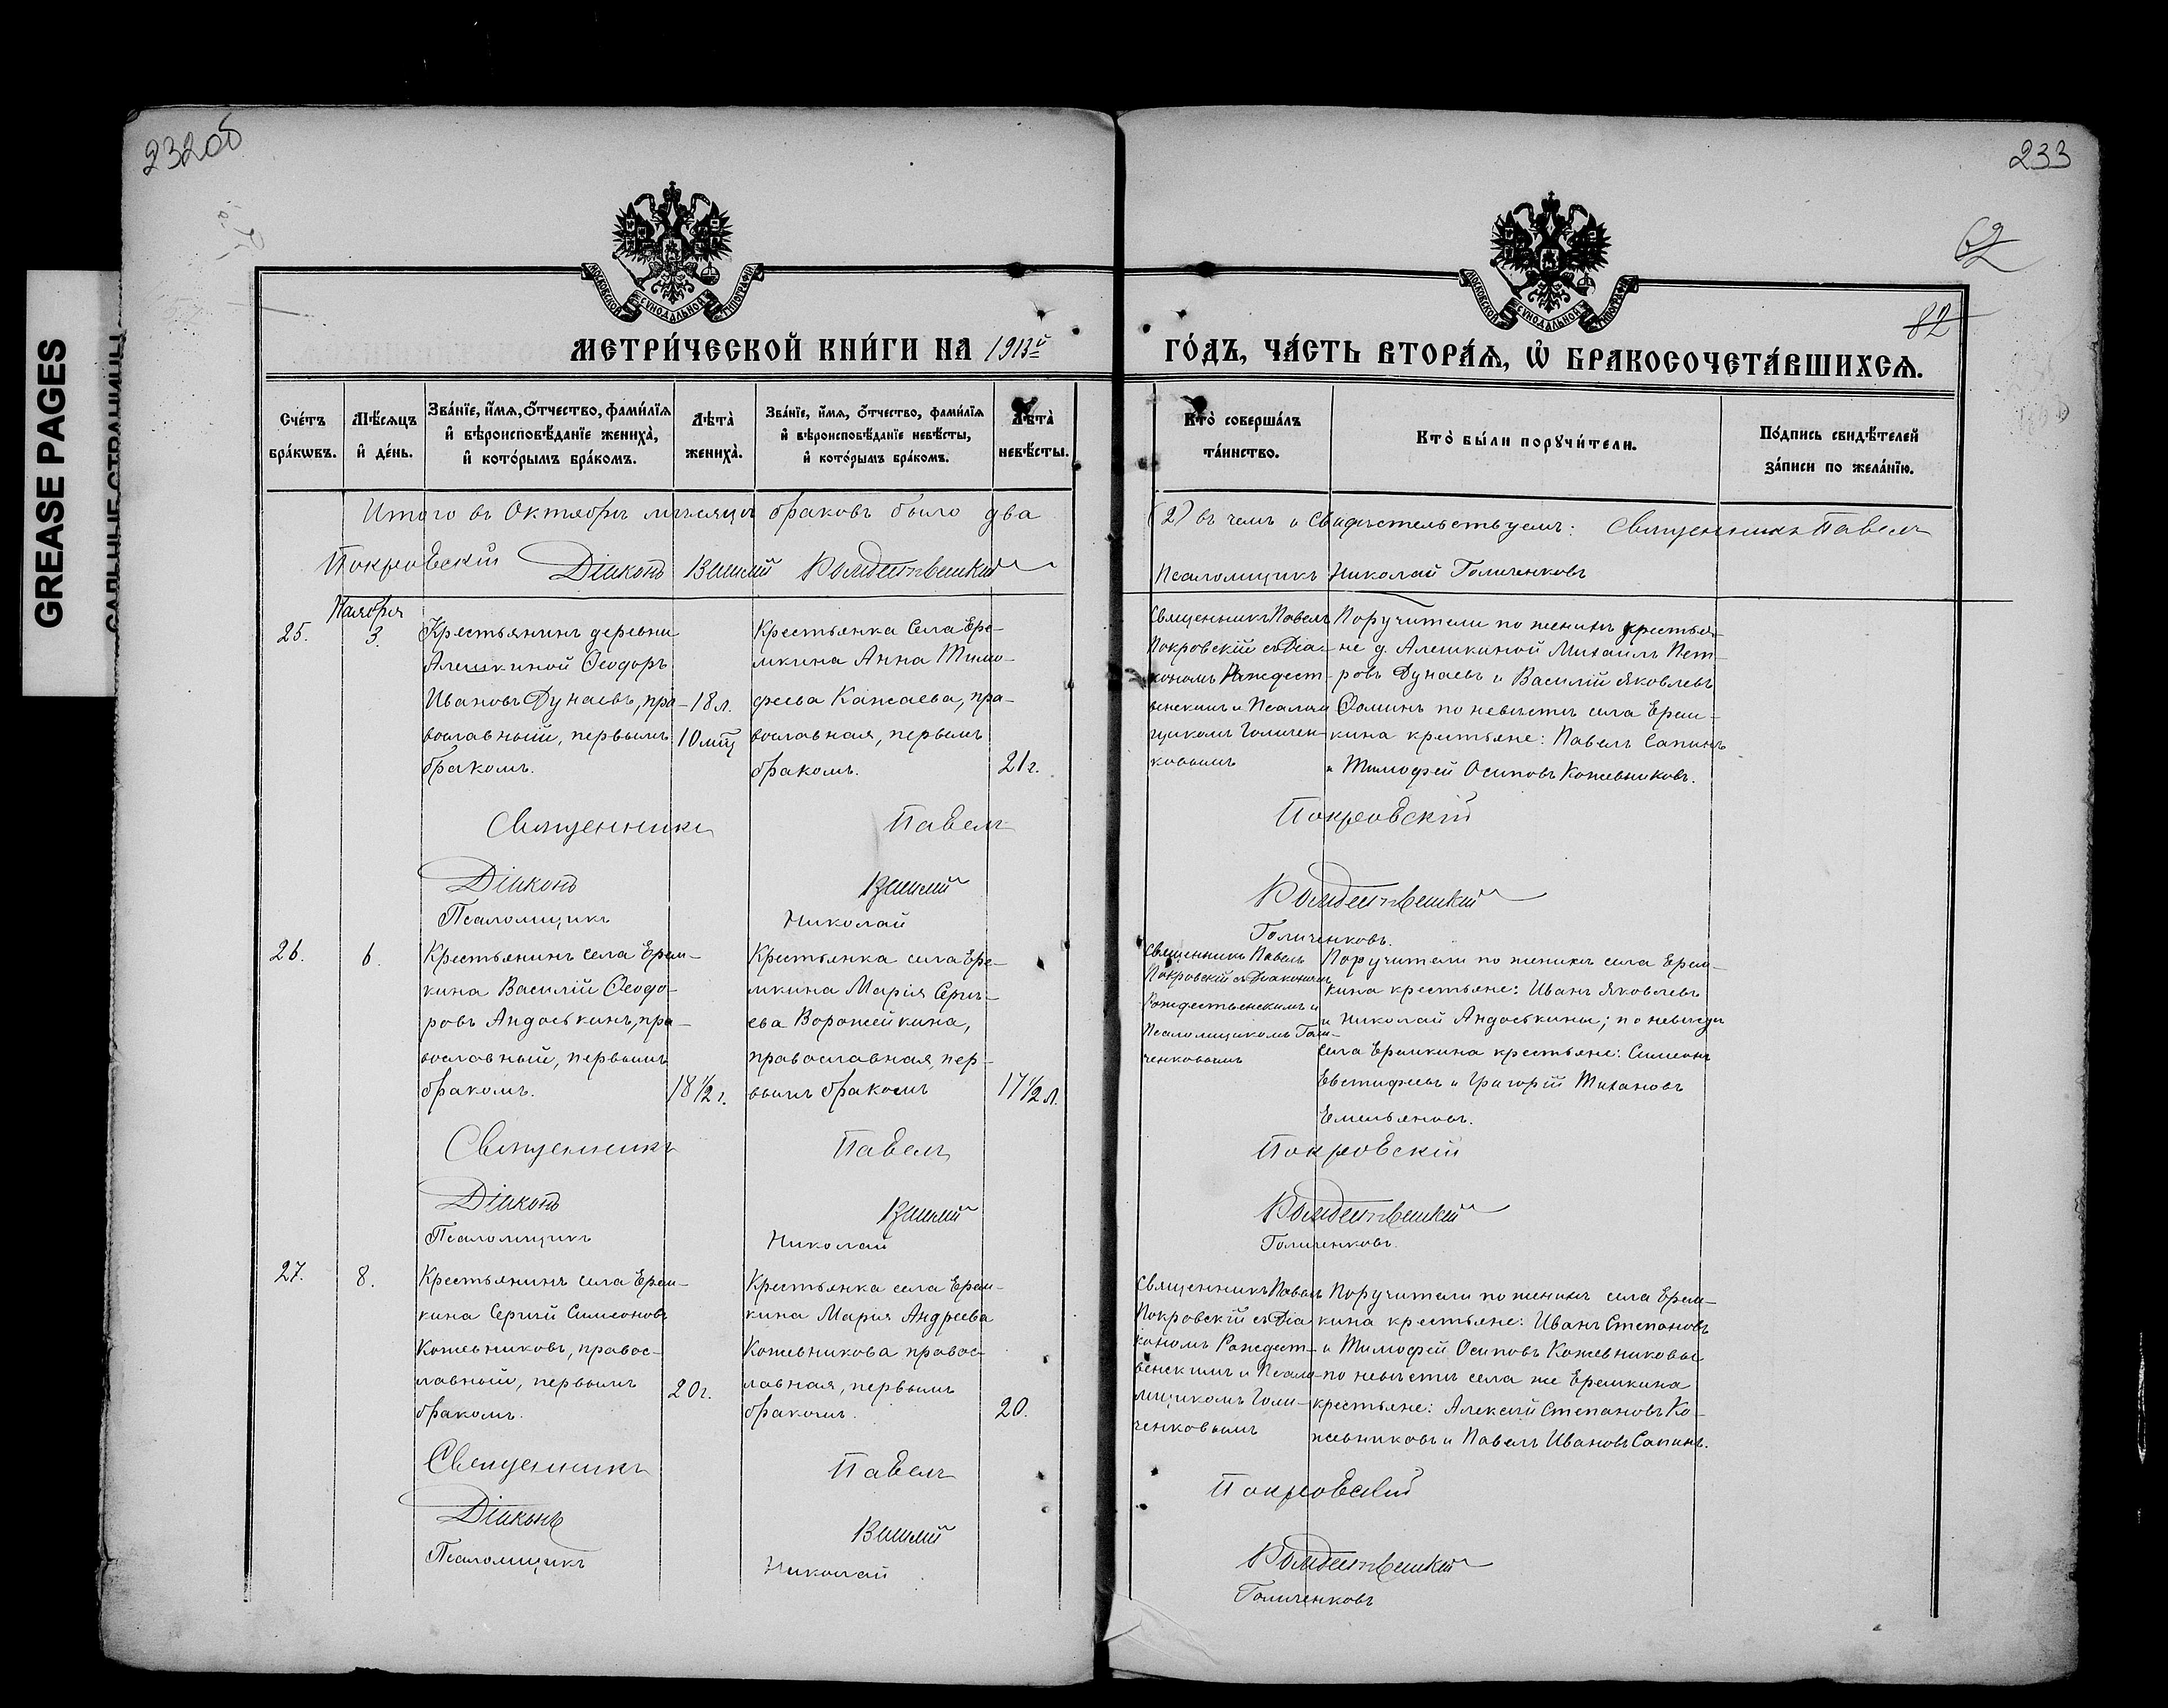 232об
233
62
82
GREASE PAGES
МОСКОВСКОЙ СѴНОДАЛЬНОЙ ТИПОГРАФІИ
МОСКОВСКОЙ СѴНОДАЛЬНОЙ ТИПОГРАФІИ
МЕТРИ́ЧЕСКОЙ КНИ́ГИ НА 1913й
ГО́ДЪ, ЧА́СТЬ ВТОРА́Ѧ, Ѡ҆ БРАКОСОЧЕТА́ВШИХСѦ.
Сче́тъ бра́кѡвъ.
Мѣ́сѧцъ и҆ де́нь.
Зва́нїе, и҆́мѧ, ѻ҆́тчество, фами́лїѧ
и҆ вѣроисповѣ́данїе жениха̀,
и҆ кото́рымъ бра́комъ.
Лѣта̀ жениха̀.
Зва́нїе, и҆́мѧ, ѻ҆́тчество, фами́лїѧ
и҆ вѣроисповѣ́данїе невѣ́сты,
и҆ кото́рымъ бра́комъ.
Лѣта̀ невѣ́сты.
Кто̀ соверша́лъ та́инство.
Кто̀ бы́ли порꙋчи́тели.
По́дпись свидѣ́телей
за́писи по жела́нїю.
Итого въ Октябрѣ мѣсяцѣ браковъ было два
(2) въ чемъ и свидѣтельствуемъ: Священникъ Павелъ
Покровскій Діаконъ Василій Рождественскій
Псаломщикъ Николай Голиченковъ
Ноября
25.
3.
Крестьянинъ деревни
Алешкиной Ѳеодоръ
Ивановъ Дунаевъ, пра-
вославный, первымъ
бракомъ.
18 л.
10 мц
Крестьянка села Ере-
мкина Анна Тимо-
феева Канаева, пра-
вославная, первымъ
бракомъ.
21 г.
Священникъ Павелъ
Покровскій съ Діа-
кономъ Рождест-
венскимъ и Псалом
щикомъ Голичен-
ковымъ
Поручители по женихѣ крестья-
не д. Алешкиной Михаилъ Пет-
ровъ Дунаевъ и Василій Яковлевъ
Ѳоминъ по невѣстѣ села Ерем-
кина крестьяне: Павелъ Сапинъ
и Тимофей Осиповъ Кожевниковъ.
Священникъ Павелъ Покровскій
Діаконъ Василій Рождественскій
Псаломщикъ Николай Голиченковъ.
26.
6.
Крестьянинъ села Ерем-
кина Василій Ѳеодо-
ровъ Андоськинъ, пра-
вославный, первымъ
бракомъ.
18 1/2 г.
Крестьянка села Ере-
мкина Марія Сергѣ-
ева Ворожейкина,
православная, пер-
вымъ бракомъ
17 1/2 л.
Священникъ Павелъ
Покровскій съ Діакономъ
Рождественскимъ и
Псаломщикомъ Голи-
ченковымъ
Поручители по женихѣ села Ерем-
кина крестьяне: Иванъ Яковлевъ
и Николай Андоськины; по невѣстѣ
села Еремкина крестьяне: Симеонъ
Евстифеевъ и Григорій Тихановъ
Емельяновъ.
Священникъ Павелъ Покровскій
Діаконъ Василій Рождественскій
Псаломщикъ Николай Голиченковъ.
27.
8.
Крестьянинъ села Ерем-
кина Сергій Симеоновъ
Кожевниковъ, правос-
лавный, первымъ
бракомъ.
20 г.
Крестьянка села Ерем-
кина Марія Андреева
Кожевникова правос-
лавная, первымъ
бракомъ.
20.
Священникъ Павелъ
Покровскій съ Діа
кономъ Рождест-
венскимъ и Псало-
мщикомъ Голи-
ченковымъ
Поручители по женихѣ села Ерем-
кина крестьяне: Иванъ Степановъ
и Тимофей Осиповъ Кожевниковы
по невѣстѣ села же Еремкина
крестьяне: Алексѣй Степановъ Ко-
жевниковъ и Павелъ Ивановъ Сапинъ.
Священникъ Павелъ Покровскій
Діаконъ Василій Рождественскій
Псаломщикъ Николай Голиченковъ